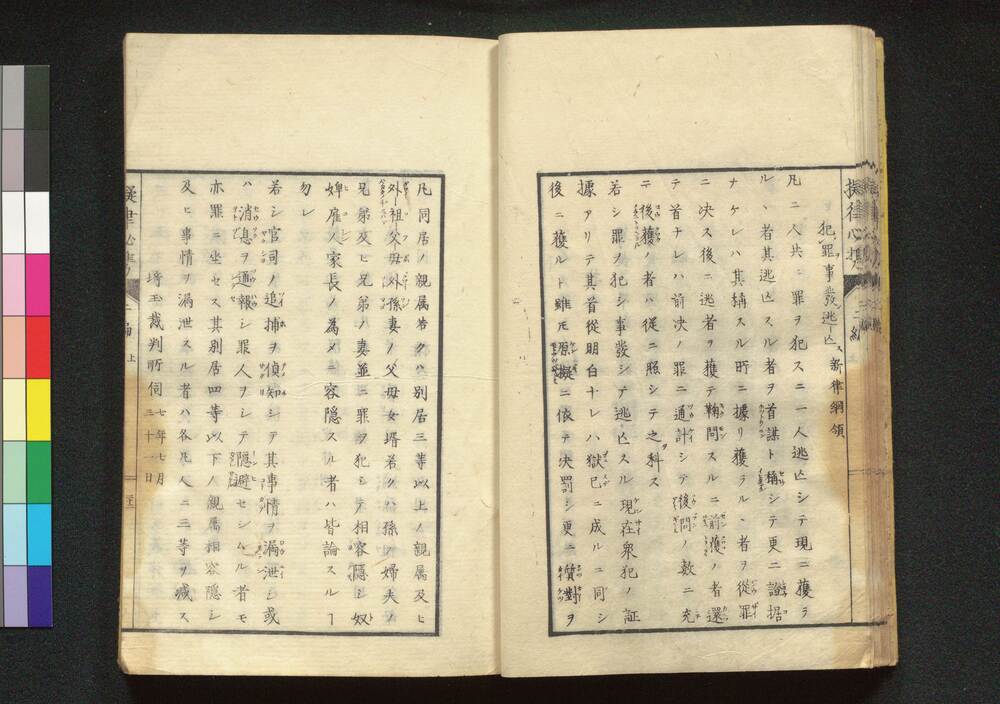 犯罪事發逃亡 新律綱領
凡二人共ニ罪ヲ犯スニ一人逃亡シテ現ニ獲ラ
ル、者其逃亡スル者ヲ首謀ト稱シテ更ニ證拠
ナケレハ其稱スル所ニ據リ獲ラル、者ヲ從罪
ニ决ス後ニ逃者ヲ獲テ鞠問スルニ前獲ノ者還
テ首ナレハ前决ノ罪ニ通計シテ後問ノ數ニ充
ニ後獲ノ者ハ從ニ照シテ之ヲ科ス
若シ罪ヲ犯シ事發シテ逃亡スル現在衆犯ノ証
據アリテ其首從明白ナレハ獄已ニ成ルニ同シ
後ニ獲ルト雖モ原擬ニ依テ决罰シ更ニ質對ヲ
凡同居ノ親属若クハ別居三等以上ノ親属及ヒ
外祖父母外孫妻ノ父母女壻若クハ孫ノ婦夫ノ
兄弟及ヒ兄弟ノ妻並ニ罪ヲ犯シテ相容隱シ奴
婢雇ノ家長ノ為メニ容隠スル者ハ皆論スルヿ
勿レ
若シ官司ノ追捕ヲ偵知シテ其事情ヲ漏泄シ或
ハ消息ヲ通報シ罪人ヲシテ隠避セシムル者モ
亦罪ニ坐セス其別居四等以下ノ親属相容隠シ
及ヒ事情ヲ漏泄スル者ハ各凡人ニ三等ヲ减ス
埼玉裁判所伺 七年七月三十一日